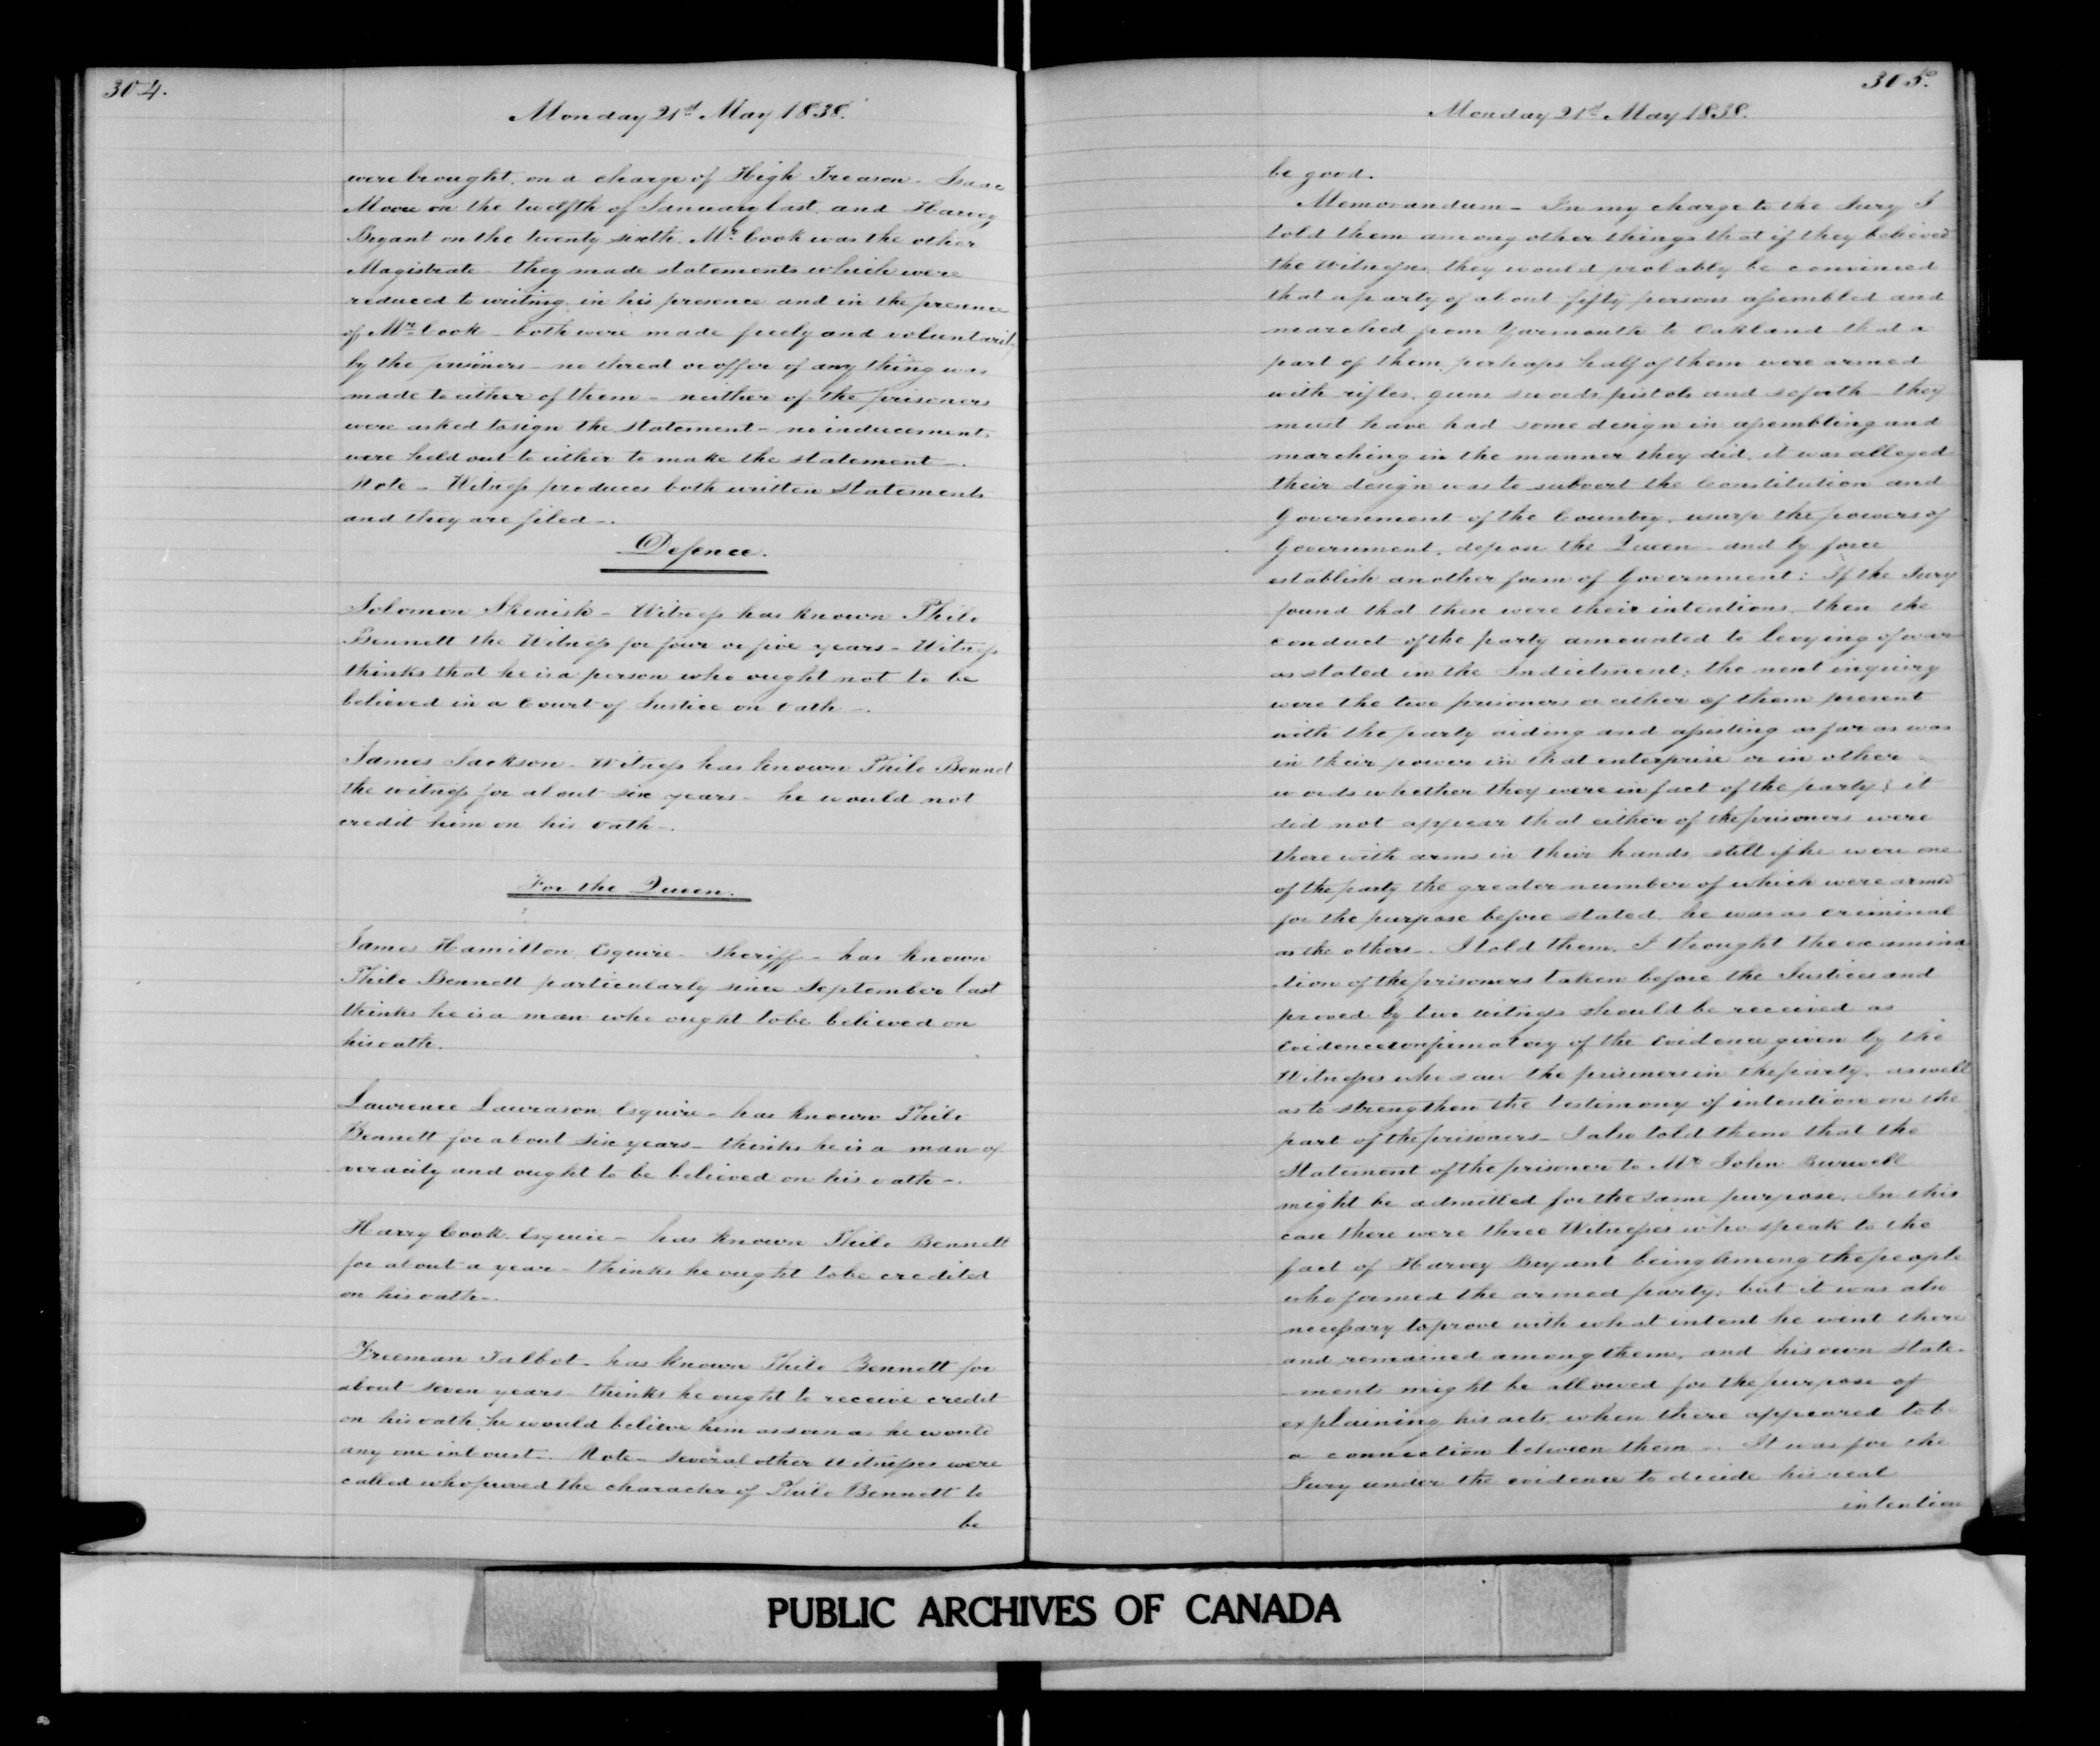 304.
Monday 21st May 1838.
were brought on a charge of High Treason. Isaac
Moore on the twelfth of January last, and Harvey
Bryant on the twenty sixth. Mr. Cook was the other
Magistrate - they made statements which were
reduced to writing in his presence and in the presence
of Mr. Cook - both were made freely and voluntarily
by the prisoners - no threat or offer of any thing was
made to either of them - neither of the prisoners
were asked to sign the statement - no inducements
were held out to either to make the statement -.
Note - Witness produces both written statements
and they are filed -.
Defence.
Solomon - Witness has known Philo
Bennett the Witness for four or five years - Witness
thinks that he is a person who ought not to be
believed in a Court of Justice on Oath -.
James Jackson - Witness has known Philo Bennet
the witness for about six years - he would not
credit him on his oath -.
For the Queen.
James Hamilton Esquire - Sheriff - has known
Philo Bennett particularly since September last
thinks he is a man who ought to be believed on
his oath.
Lawrence Lawrason Esquire - has known Philo
Bennett for about six years - thinks he is a man of
veracity and ought to be believed on his oath -.
Harry Cook Esquire - has known Philo Bennett
for about a year - thinks he ought to be credited
on his oath -.
Freeman Talbot - has known Philo Bennett for
about seven years - thinks he ought to receive credit
on his oath he would believe him as soon as he would
any one in Court -. Note - Several other Witnesses were
called who proved the character of Philo Bennett to
be
305.
Monday 21st May 1838.
be good.
Memorandum - In my charge to the Jury I
told them among other things that if they believed
the Witnesses, they would probably be convinced
that a party of about fifty persons assembled and
marched from Yarmouth to Oakland that a
part of them perhaps half of them were armed
with rifles, guns swords pistols and so forth - they
must have had some design in assembling and
marching in the manner they did, it was alleged
their design was to subvert the Constitution and
Government of the Country, usurp the powers of
Government, depose the Queen - and by force
establish another form of Government: If the Jury
found that these were their intentions, then the
conduct of the party amounted to levying of war
as stated in the Indictment; the next inquiry
were the two prisoners or either of them present
with the party aiding and assisting as far as was
in their power in that enterprise or in other
words whether they were in fact of the party; it
did not appear that either of the prisoners were
there with arms in their hands, still if he were one
of the party the greater number of which were armed
for the purpose before stated, he was as criminal
as the others -. I told them, I thought the examina-
-tion of the prisoners taken before the Justices and
proved by two witness should be received as
Evidence confirmatory of the Evidence given by the
Witnesses who saw the prisoners in the party, as well
as to strengthen the testimony of intention on the
part of the prisoners - I also told them that the
Statement of the prisoner to Mr John Burwell
might be admitted for the same purpose. In this
case there were three Witnesses who speak to the
fact of Harvey Bryant being among the people
who formed the armed party; but it was also
necessary to prove with what intent he went there
and remained among them, and his own state-
-ments might be allowed for the purpose of
explaining his acts, when there appeared to be
a connection between them -. It was for the
Jury under the evidence to decide his real
intention
PUBLIC ARCHIVES OF CANADA